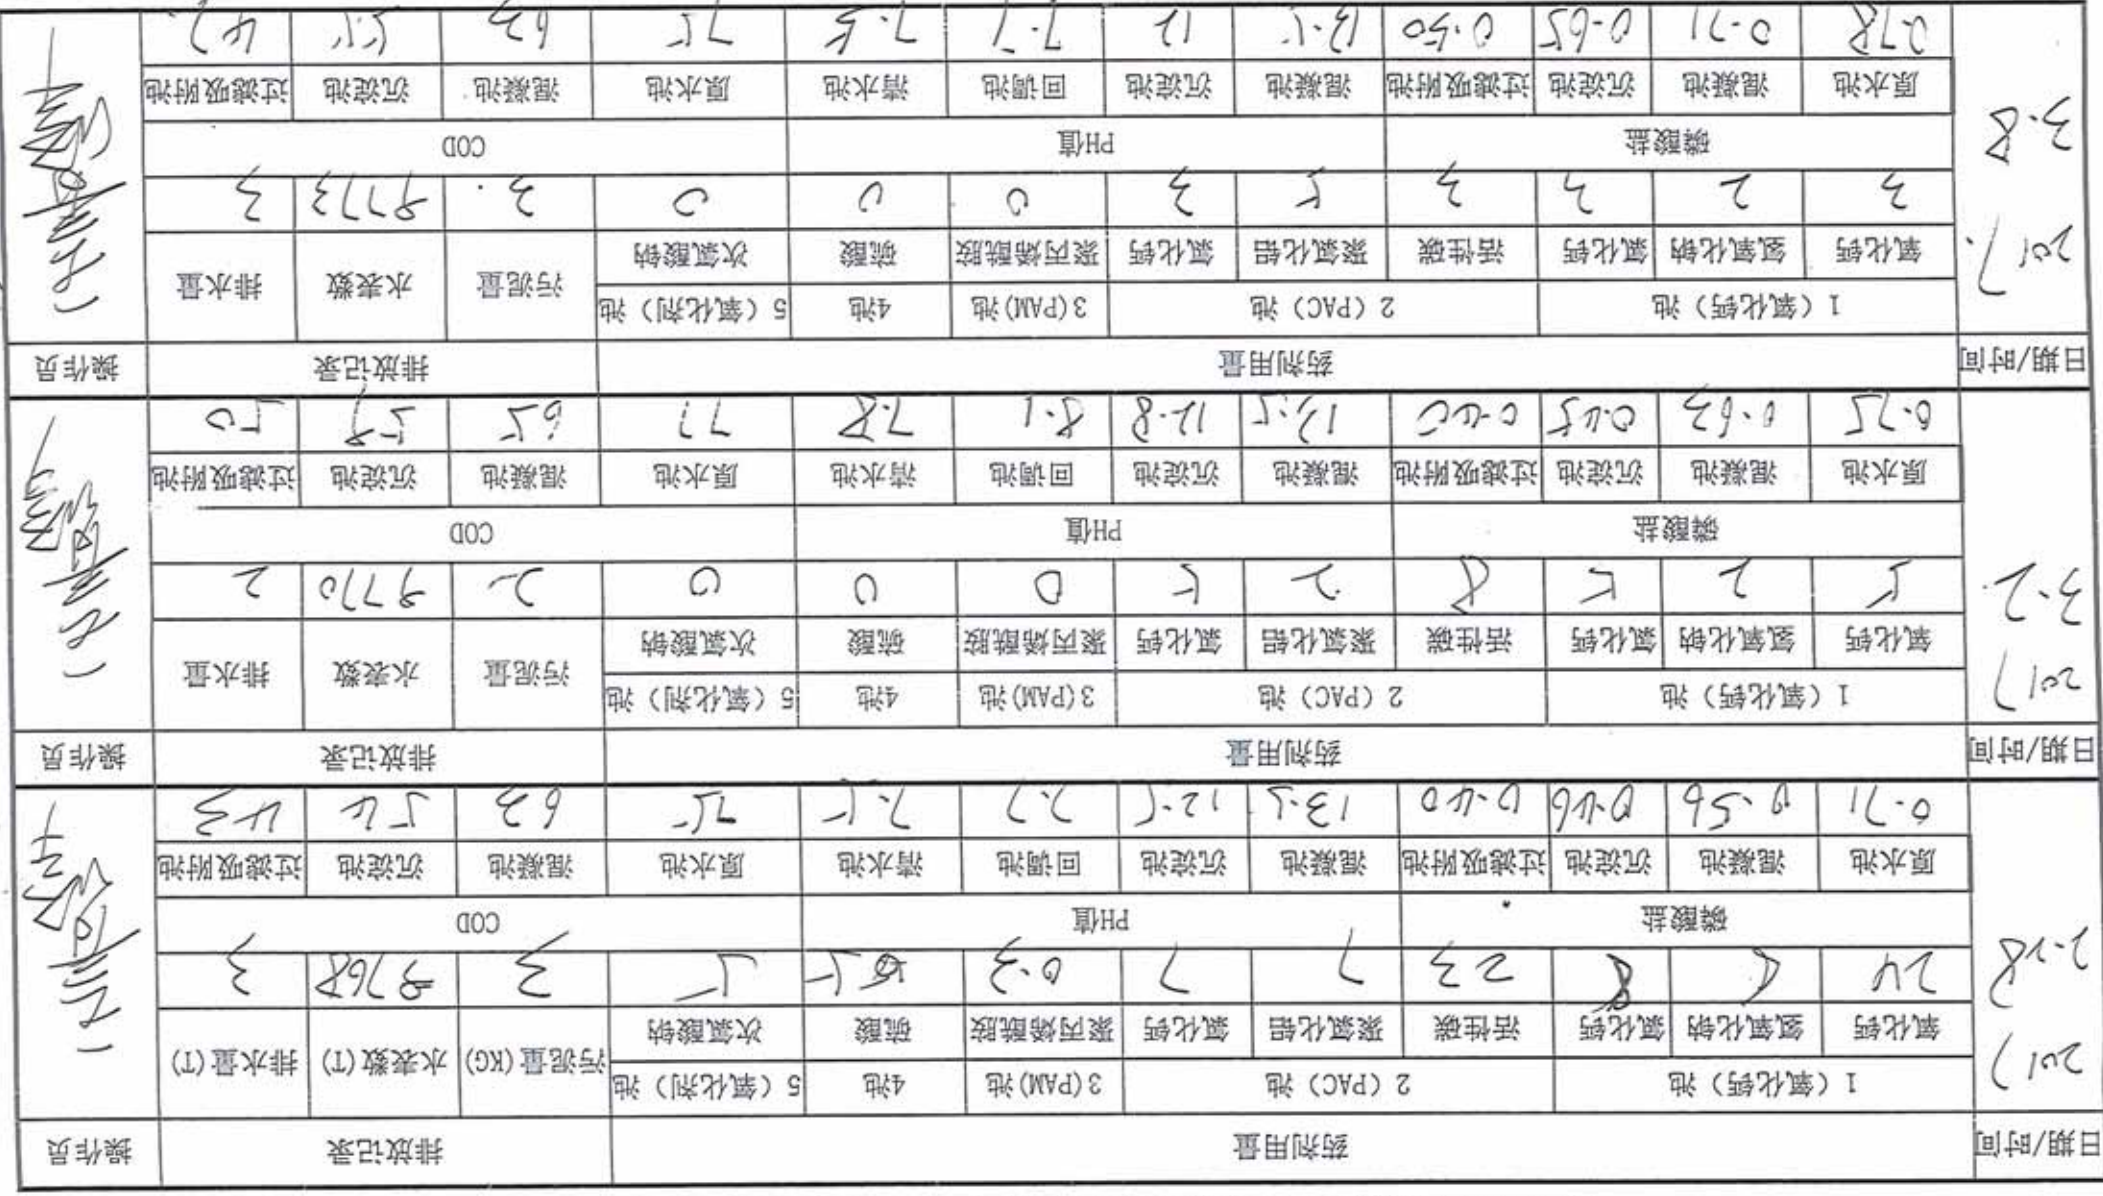 日期/时间 药剂用量 排放记录 操作员
2017 1（氧化钙）池 2（PAC）池 3(PAM)池 4池 5（氧化剂）池 污泥量(KG) 水表数(T) 排水量(T)
氧化钙 氢氧化钠 氯化钙 活性碳 聚氯化铝 氯化钙 聚丙烯酰胺 硫酸 次氯酸钠
2-28 24 8 23 7 7 0.3 5 3 9768 3
磷酸盐 PH值 COD
原水池 混凝池 沉淀池 过滤吸附池 混凝池 沉淀池 回调池 清水池 原水池 混凝池 沉淀池 过滤吸附池
0.71 0.56 0.46 0.40 13.5 12.5 7.7 7.5 75 63 54 43
日期/时间 药剂用量 排放记录 操作员
2017 1（氧化钙）池 2（PAC）池 3(PAM)池 4池 5（氧化剂）池 污泥量 水表数 排水量
氧化钙 氢氧化钠 氯化钙 活性碳 聚氯化铝 氯化钙 聚丙烯酰胺 硫酸 次氯酸钠
3-2 5 2 5 8 2 5 0 0 0 2 9770 2
磷酸盐 PH值 COD
原水池 混凝池 沉淀池 过滤吸附池 混凝池 沉淀池 回调池 清水池 原水池 混凝池 沉淀池 过滤吸附池
0.75 0.63 0.45 0.40 13.5 12.8 8.1 7.8 77 65 50
日期/时间 药剂用量 排放记录 操作员
2017. 1（氧化钙）池 2（PAC）池 3(PAM)池 4池 5（氧化剂）池 污泥量 水表数 排水量
氧化钙 氢氧化钠 氯化钙 活性碳 聚氯化铝 氯化钙 聚丙烯酰胺 硫酸 次氯酸钠
3-8 3 2 3 3 5 3 0 0 0 3 9773 3
磷酸盐 PH值 COD
原水池 混凝池 沉淀池 过滤吸附池 混凝池 沉淀池 回调池 清水池 原水池 混凝池 沉淀池 过滤吸附池
0.78 0.71 0.65 0.50 13.5 12 7.7 7.5 75 63 55